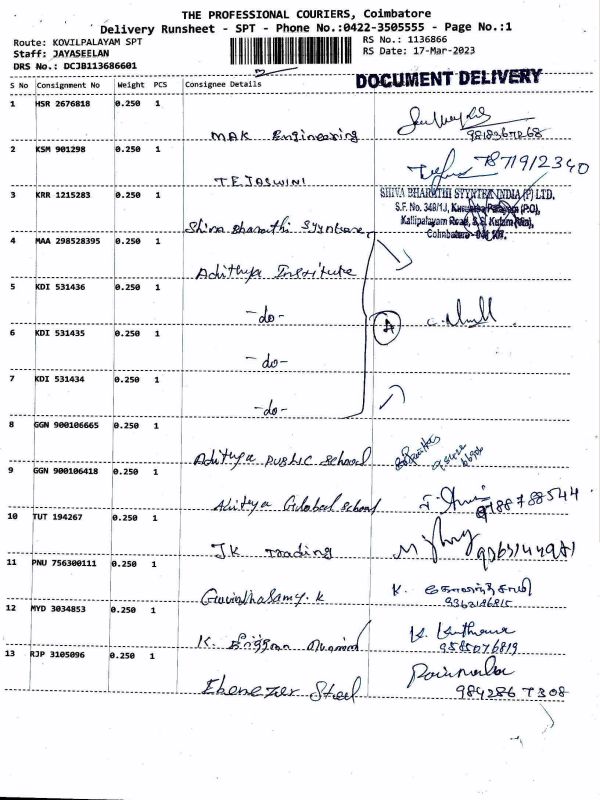 THE PROFESSIONAL COURIERS, Coimbatore
Delivery Runsheet - SPT - Phone No.:0422-3505555 - Page No.:1
Route: KOVILPALAYAM SPT RS No.: 1136866
Staff: JAYASEELAN RS Date: 17-Mar-2023
DRS No.: DCJB113686601 DOCUMENT DELIVERY
S No Consignment No Weight PCS Consignee Details
1 HSR 2676818 0.250 1
MAK Engineering
2 KSM 901298 0.250 1
TEJASWINI 7871912340
3 KRR 1215283 0.250 1 SHIVA BHARATHI SYNTEX INDIA (P) LTD.
S.F. No. 348/1J,
Kallipalayam Road,
Shiva Bharathi Coimbatore
4 MAA 298528395 0.250 1
Adithya Institute
5 KDI 531436 0.250 1
-do- A
6 KDI 531435 0.250 1
-do-
7 KDI 531434 0.250 1
-do-
8 GGN 900106665 0.250 1
Adithya PUBLIC School
9 GGN 900106418 0.250 1
Global School 9788788544
10 TUT 194267 0.250 1
JK Trading
11 PNU 756300111 0.250 1
Govindhasamy. K K.
12 MYD 3034853 0.250 1
K. K.
13 RJP 3105096 0.250 1
Ebenezer Steel 9842867308